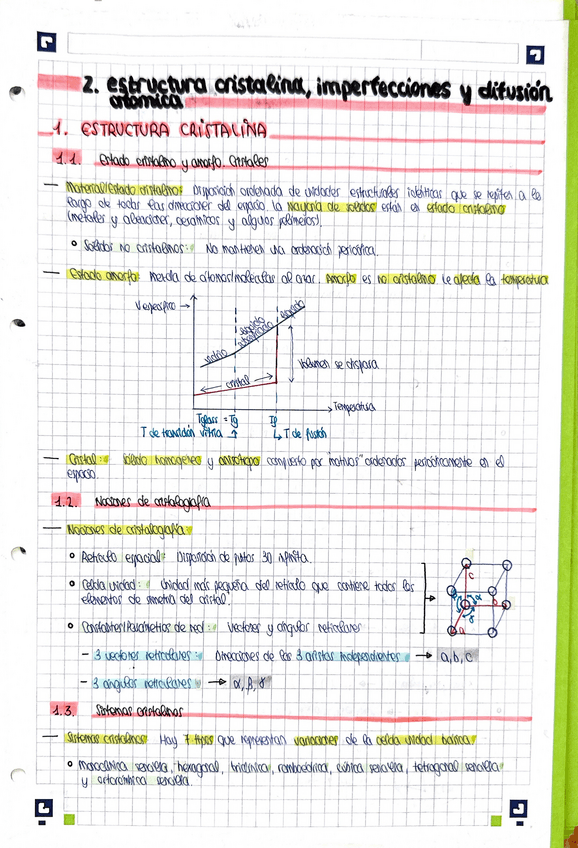 2. estructura cristalina, imperfecciones y difusión
atómica
1. ESTRUCTURA CRISTALINA
1.1. Estado cristalino y amorfo. Cristales
— Material/Estado cristalino: Disposición ordenada de unidades estructurales idénticas que se repiten a lo
largo de todas las direcciones del espacio. La mayoría de sólidos están en estado cristalino
(metales y aleaciones, cerámicos y algunos polímeros).
Sólidos no cristalinos: No mantienen una ordenación periódica.
— Estado amorfo: Mezcla de átomos/moléculas al azar. Amorfo es no cristalino le afecta la temperatura
V específico →
vidrio
líquido
subenfriado
líquido
cristal
Volumen se dispara
Temperatura
Tglass = Tg
Tf
T de transición vítrea
T de fusión
— Cristal: sólido homogéneo y anisótopo compuesto por "motivos" ordenados periódicamente en el
espacio.
1.2. Nociones de cristalografía
— Nociones de cristalografía:
Retículo espacial: Disposición de puntos 3D infinita.
Celda unidad: Unidad más pequeña del retículo que contiene todos los
elementos de simetría del cristal.
Constantes/Parámetros de red: Vectores y ángulos reticulares
- 3 vectores reticulares: Direcciones de las 3 aristas independientes → a, b, c
- 3 ángulos reticulares → α, β, γ
c
β α
b
γ
a
1.3. Sistemas cristalinos
— Sistemas cristalinos: Hay 7 tipos que representan variaciones de la celda unidad básica:
Monoclínica sencilla, hexagonal, triclínica, romboédrica, cúbica sencilla, tetragonal sencilla
y ortorrómbica sencilla.